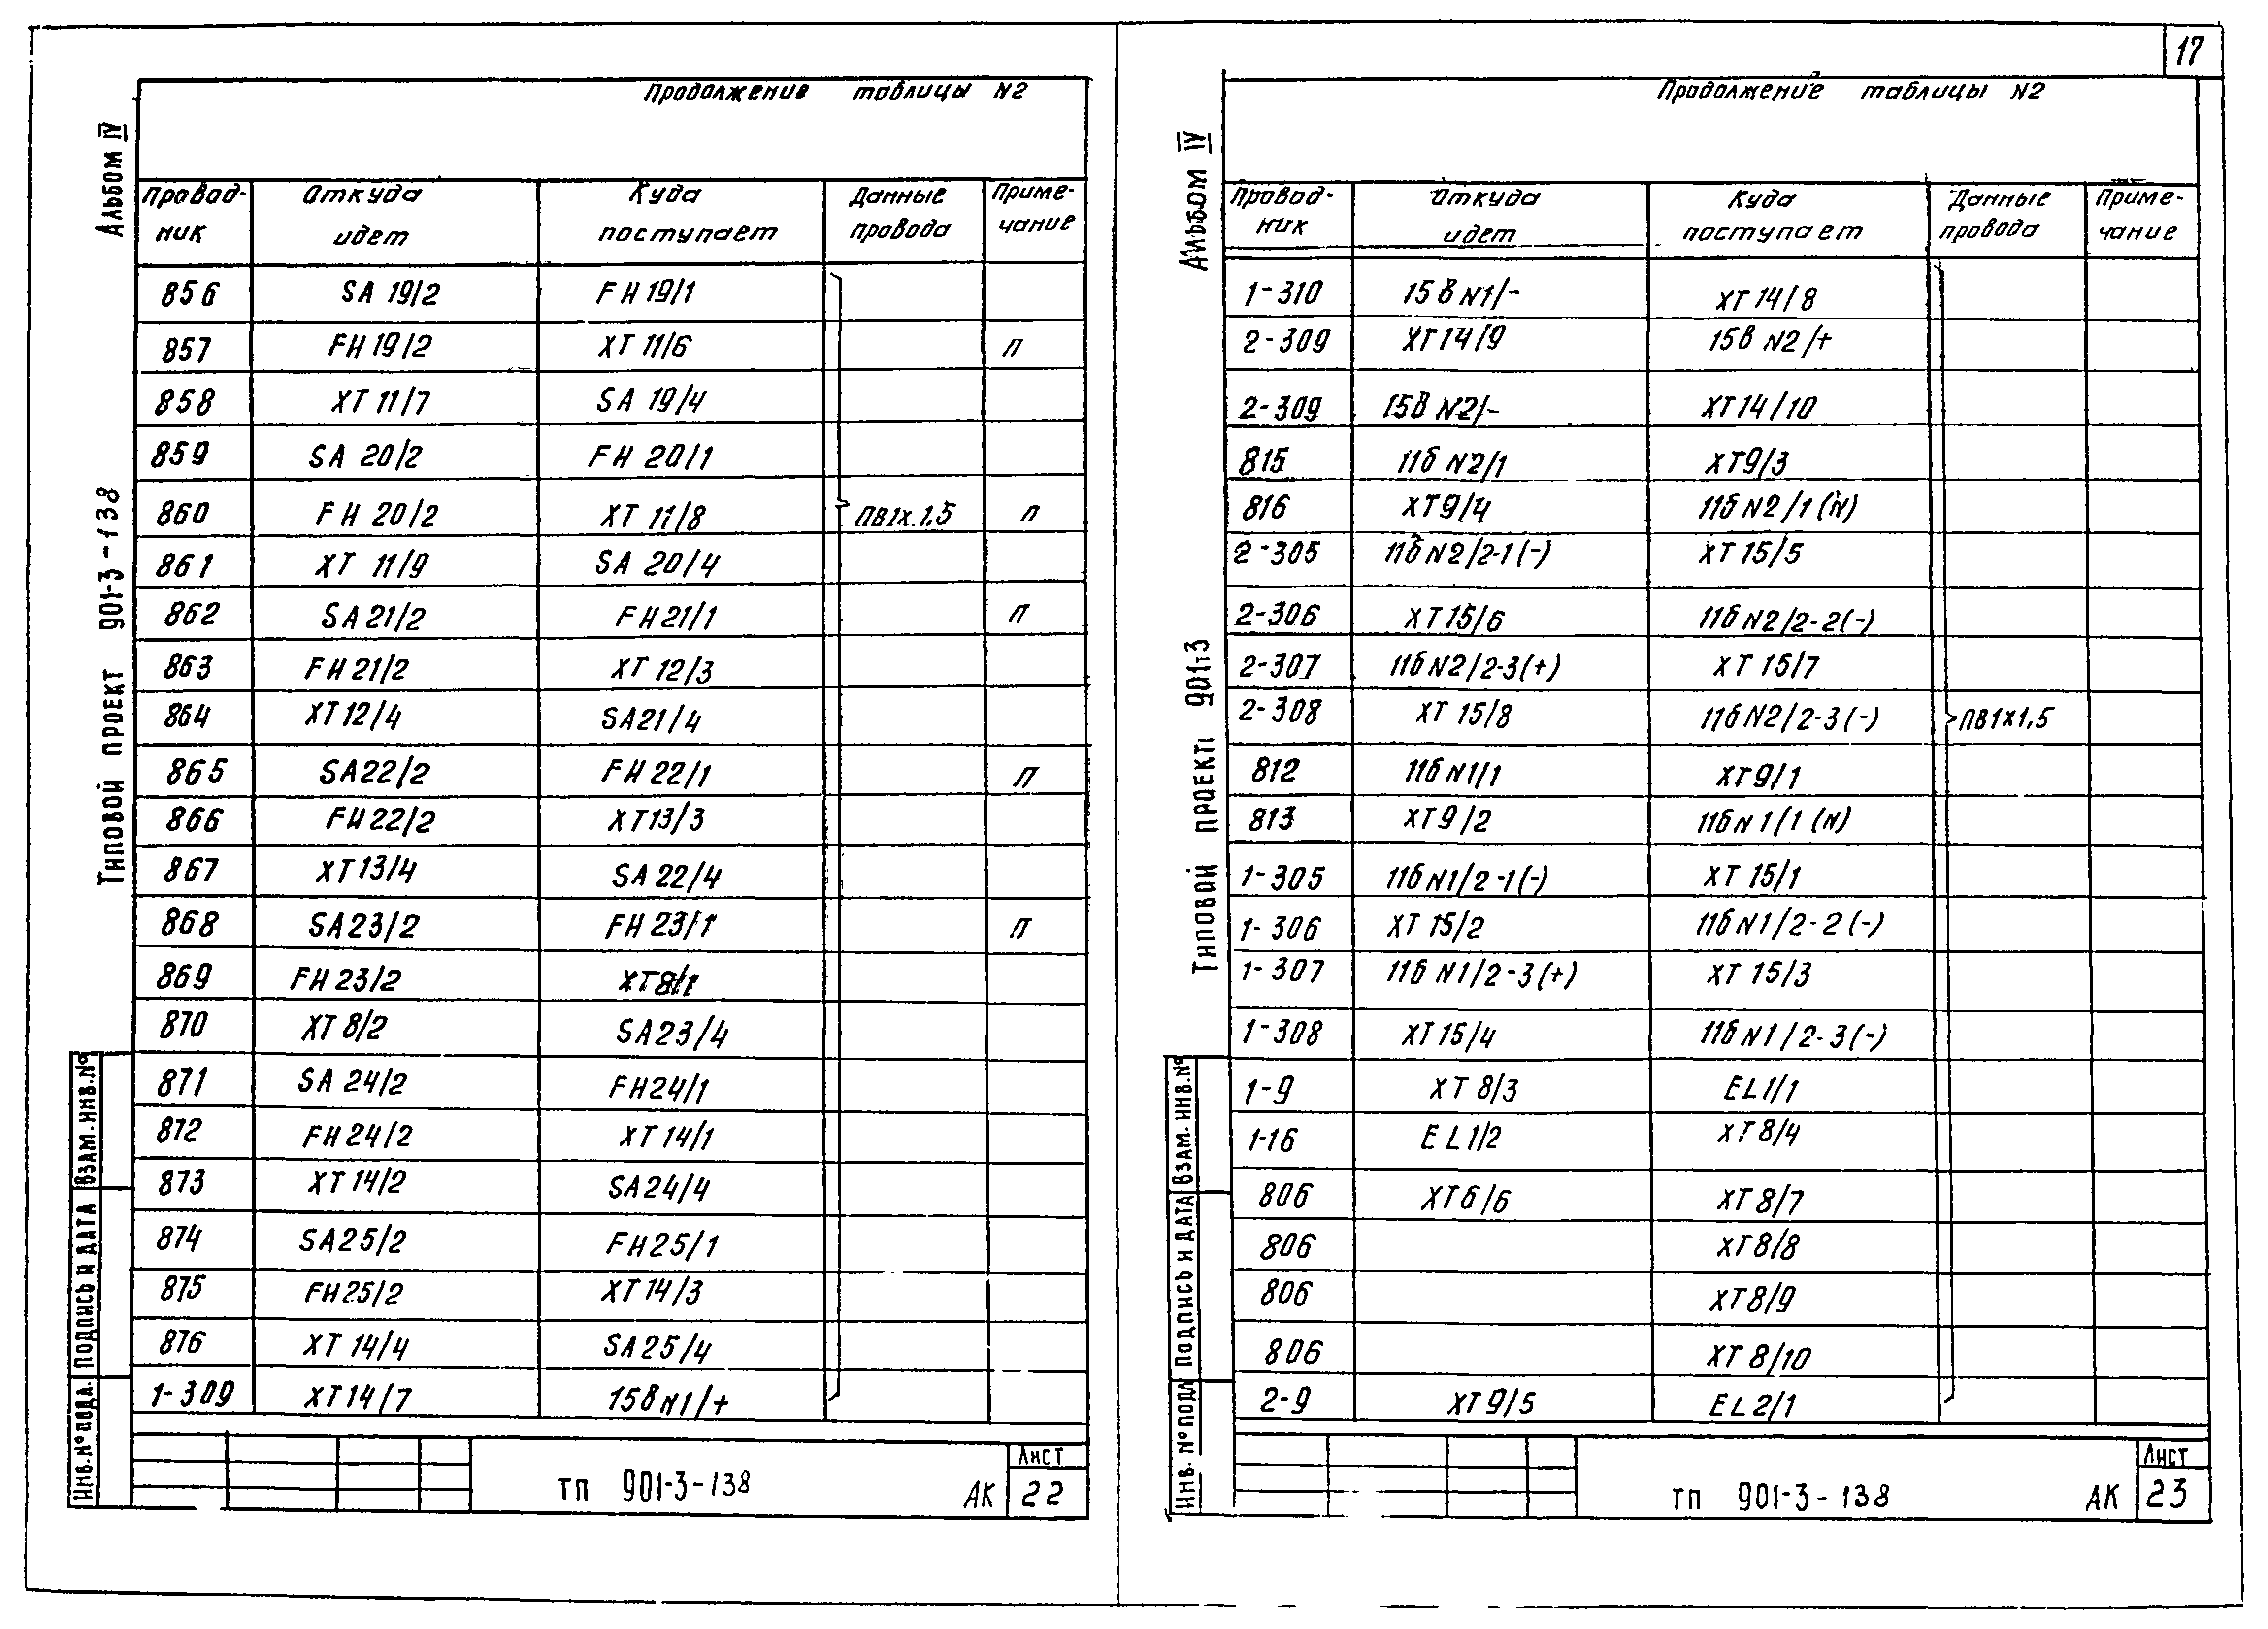 17
Альбом IV
Типовой проект 901-3-138
Продолжение таблицы N2
Провод-ник Откуда идет Куда поступает Данные провода Приме-чание
856 SA 19/2 FH 19/1
857 FH 19/2 XT 11/6 п
858 XT 11/7 SA 19/4
859 SA 20/2 FH 20/1
860 FH 20/2 XT 11/8 ПВ1х1,5 п
861 XT 11/9 SA 20/4
862 SA 21/2 FH 21/1 п
863 FH 21/2 XT 12/3
864 XT 12/4 SA 21/4
865 SA 22/2 FH 22/1 п
866 FH 22/2 XT 13/3
867 XT 13/4 SA 22/4
868 SA 23/2 FH 23/1 п
869 FH 23/2 XT 8/1
870 XT 8/2 SA 23/4
871 SA 24/2 FH 24/1
872 FH 24/2 XT 14/1
873 XT 14/2 SA 24/4
874 SA 25/2 FH 25/1
875 FH 25/2 XT 14/3
876 XT 14/4 SA 25/4
1-309 XT 14/7 15в N1/+
Инв. № подл. Подпись и дата Взам. инв. №
ТП 901-3-138 АК
Лист
22
Альбом IV
Типовой проект 901-3
Продолжение таблицы N2
Провод-ник Откуда идет Куда поступает Данные провода Приме-чание
1-310 15в N1/- XT 14/8
2-309 XT 14/9 15в N2/+
2-309 15в N2/- XT 14/10
815 11б N2/1 XT 9/3
816 XT 9/4 11б N2/1 (N)
2-305 11б N2/2-1(-) XT 15/5
2-306 XT 15/6 11б N2/2-2(-)
2-307 11б N2/2-3(+) XT 15/7
2-308 XT 15/8 11б N2/2-3(-) ПВ1х1,5
812 11б N1/1 XT 9/1
813 XT 9/2 11б N1/1 (N)
1-305 11б N1/2-1(-) XT 15/1
1-306 XT 15/2 11б N1/2-2(-)
1-307 11б N1/2-3(+) XT 15/3
1-308 XT 15/4 11б N1/2-3(-)
1-9 XT 8/3 EL1/1
1-16 EL1/2 XT 8/4
806 XT 6/6 XT 8/7
806 XT 8/8
806 XT 8/9
806 XT 8/10
2-9 XT 9/5 EL2/1
Инв. № подл Подпись и дата Взам. инв. №
ТП 901-3-138 АК
Лист
23